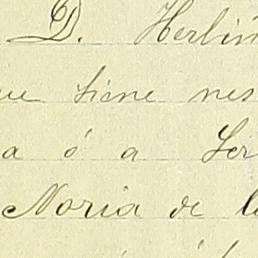 D. Herlin
ue tiene nes
a ó a Ser
Noria de l